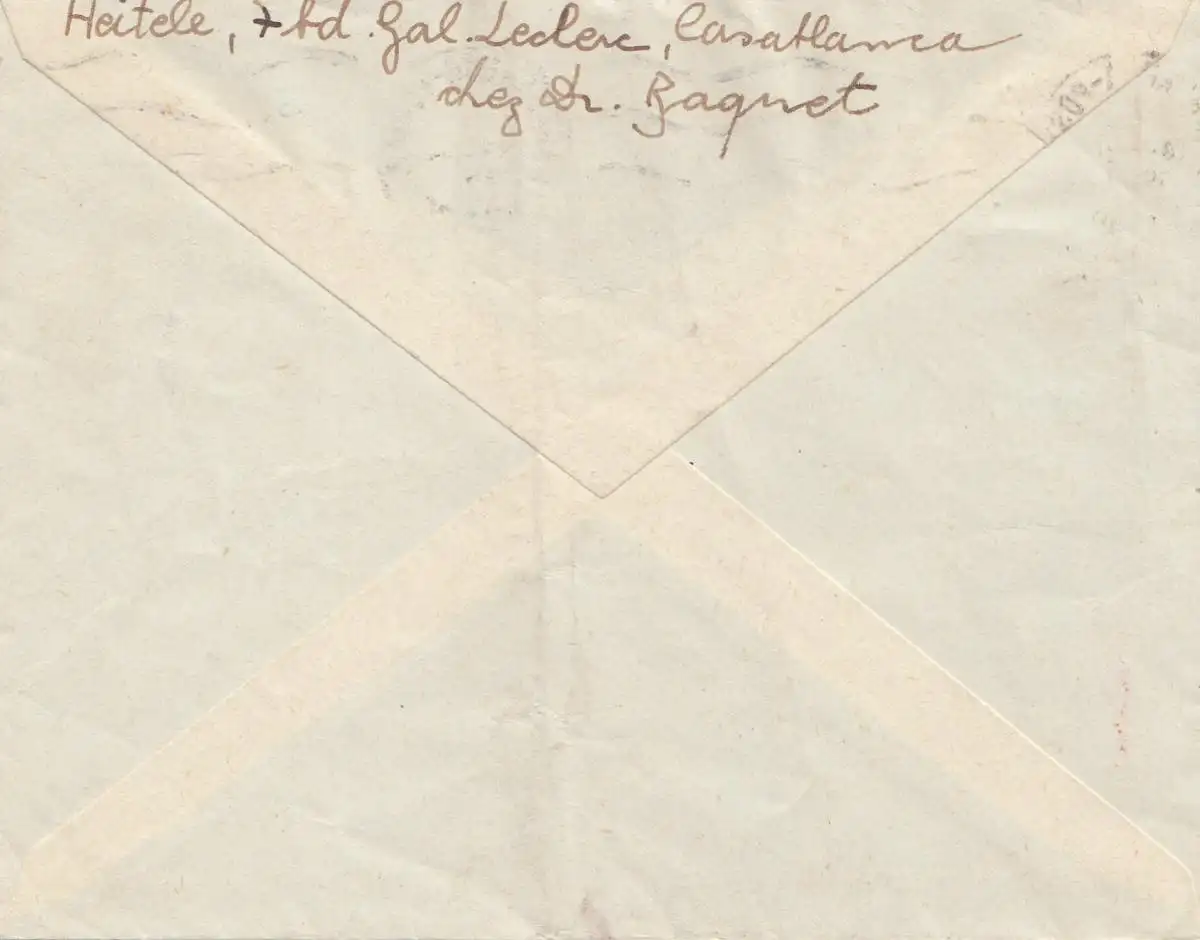 Heitele, 7 bd. Gal. Leclerc, Casablanca
chez Dr. Baquet